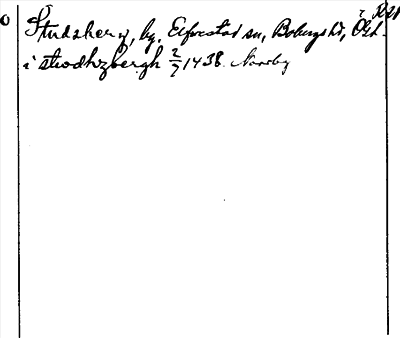 Studsberg, by. Elfvestad sn, Bobergs hd, Ög.
i stwdhzbergh 2/7 1438. Norrby